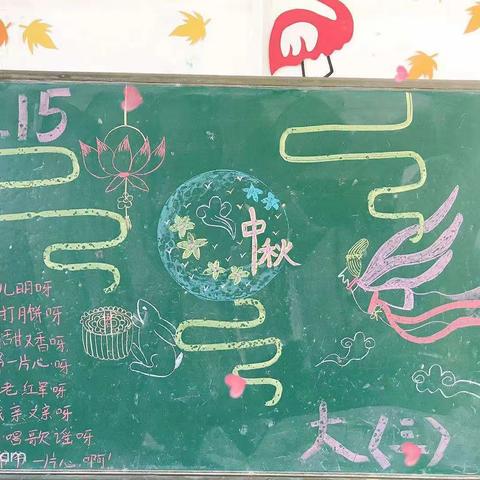 15
中秋
儿明呀
打月饼呀
甜又香呀
一片心呀
老红军呀
亲又亲呀
唱歌谣呀
一片心啊!
am
大(三)